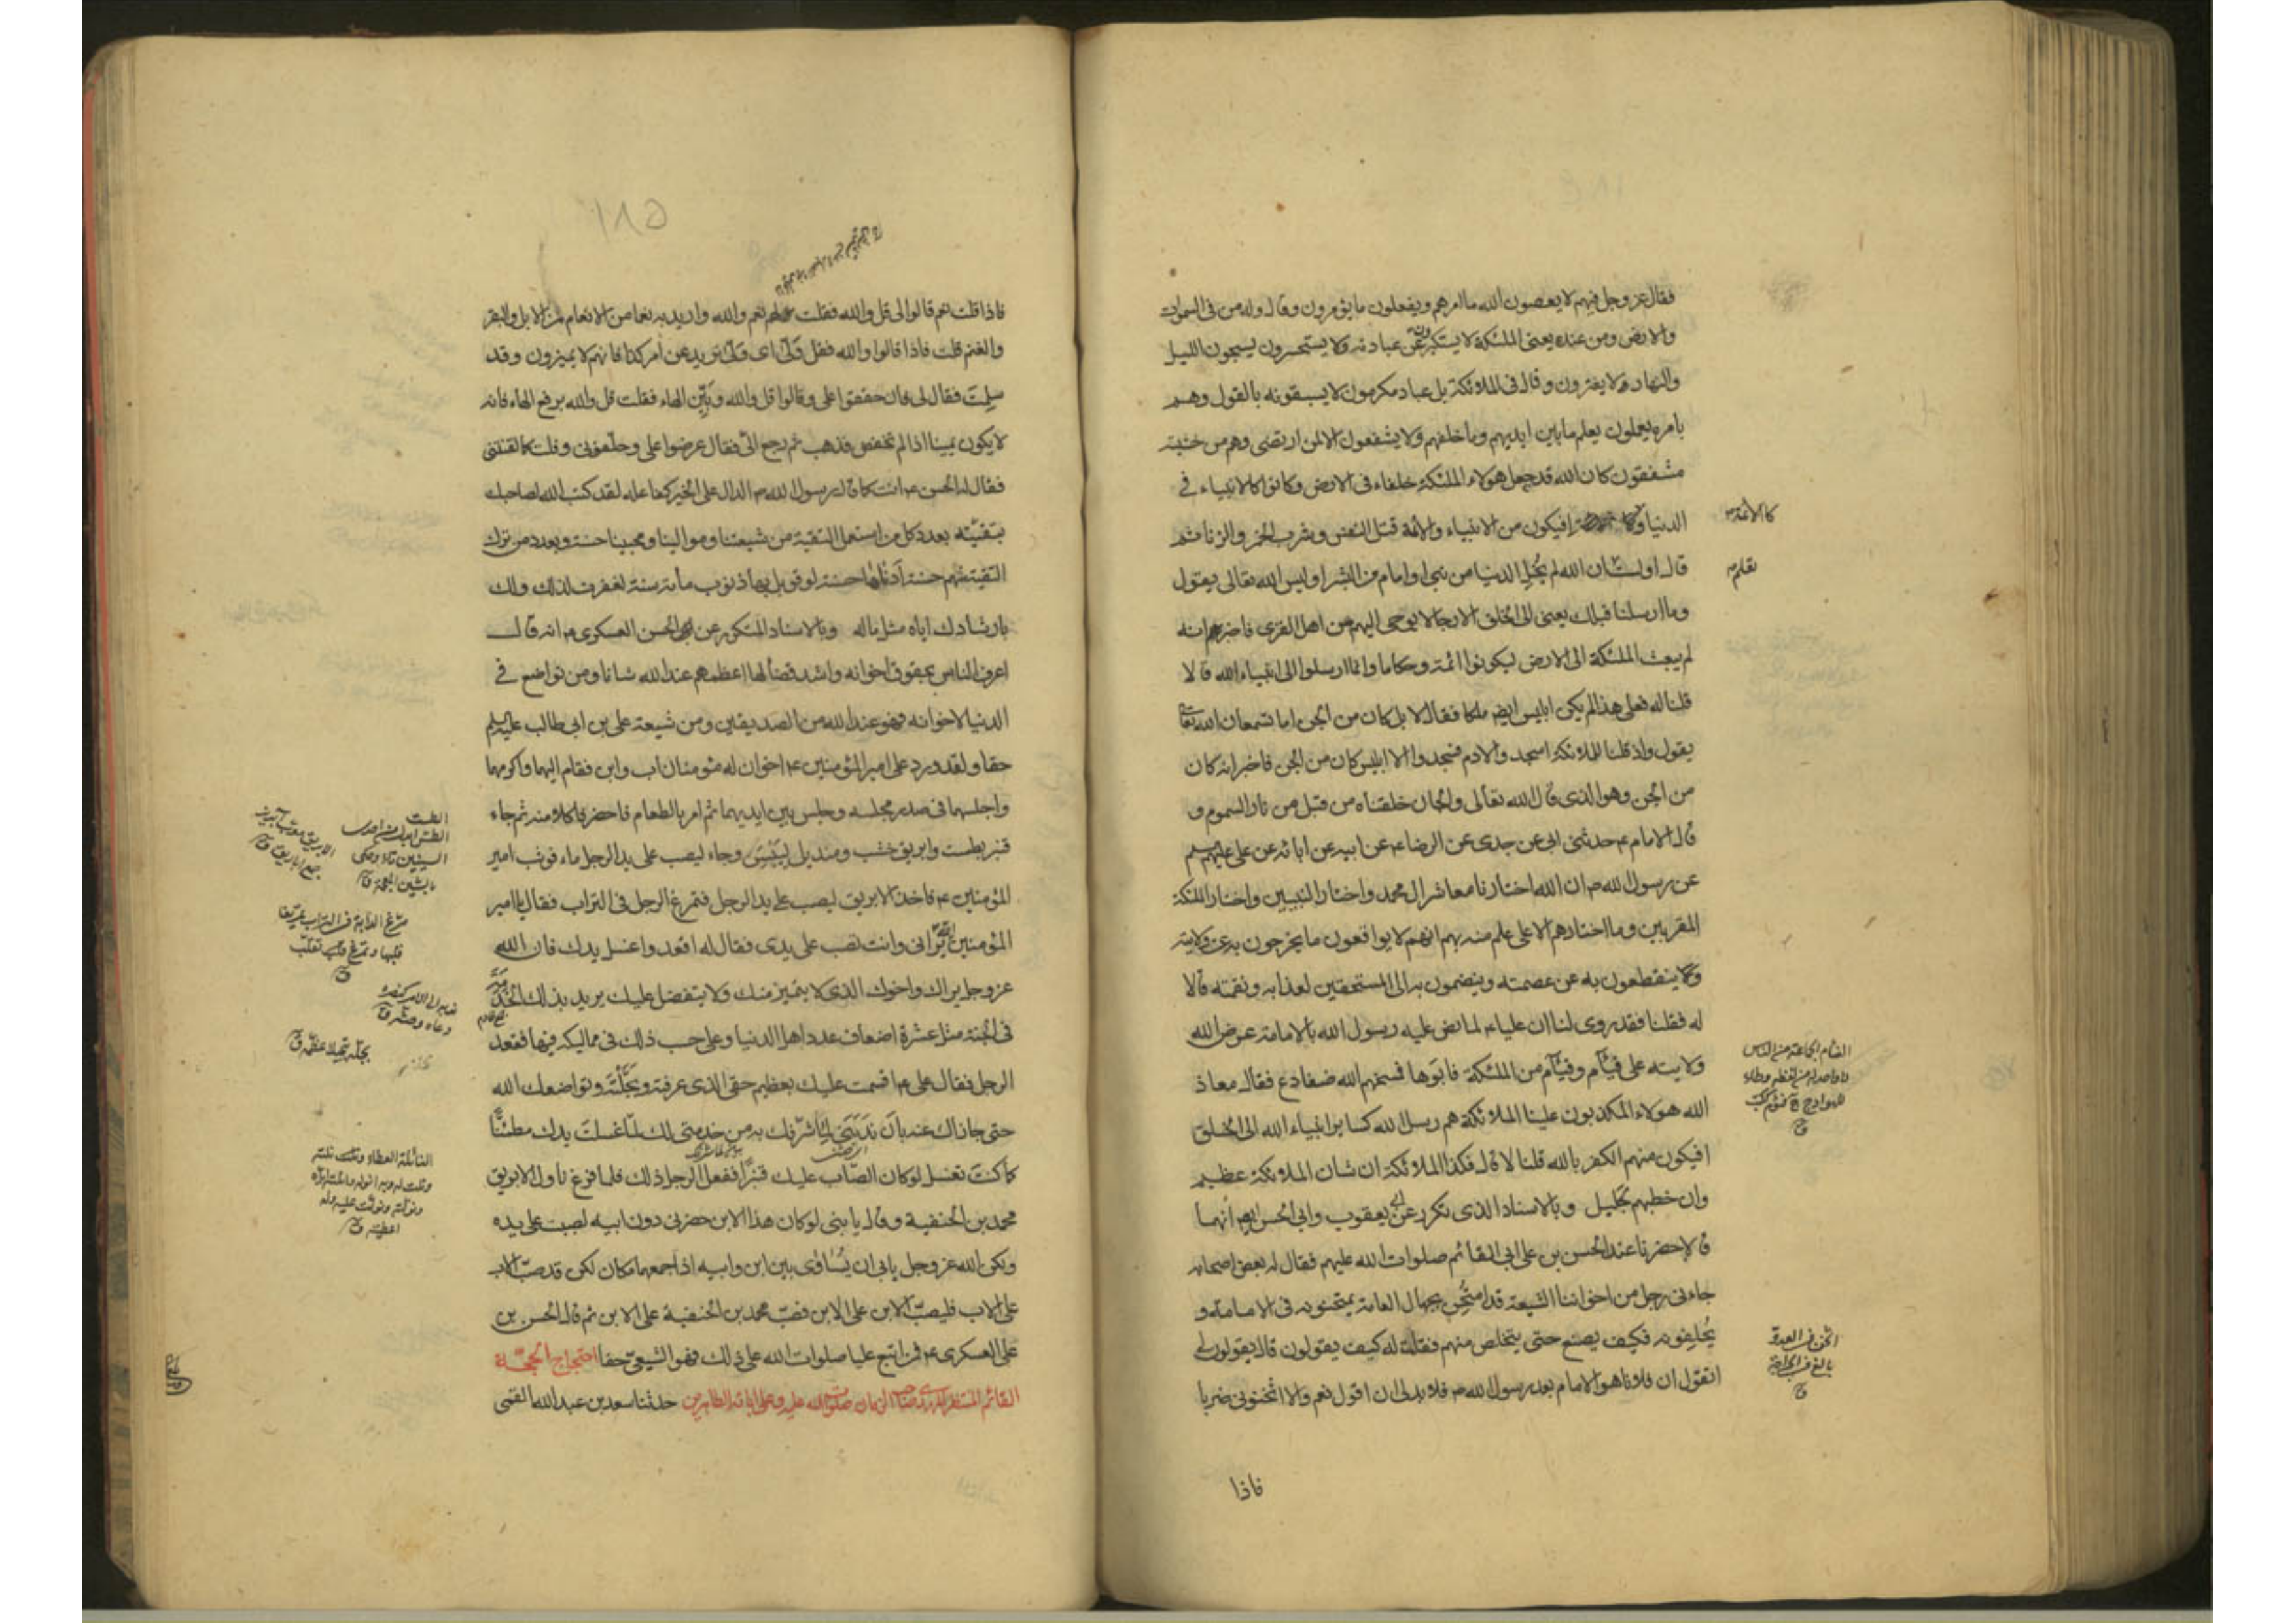 فقال عز وجل فيهم لا يعصون الله ما امرهم ويفعلون ما يؤمرون وقال وله من فى السموات
والارض ومن عنده يعنى الملئكة لا يستكبرون عن عبادته ولا يستحسرون يسبحون الليل
والنهار ولا يفترون وقال فى الملائكة بل عباد مكرمون لا يسبقونه بالقول وهم
بامره يعملون يعلم ما بين ايديهم وما خلفهم ولا يشفعون الا لمن ارتضى وهم من خشيته
مشفقون كان الله قد جعل هولاء الملئكة خلفاء فى الارض وكانوا كالانبياء فى
الدنيا و كالائمة افيكون من الانبياء والائمة قتل النفس وشرب الخمر والزنا ثم
قال اولست ان الله لم يخل الدنيا من نبى او امام من البشر اوليس الله تعالى يقول
وما ارسلنا قبلك يعنى الى الخلق الا رجالا يوحى اليهم من اهل القرى فاخبر انه
لم يبعث الملئكة الى الارض ليكونوا ائمة وحكاما وانما ارسلوا الى انبياء الله قالا
قلنا له فعلى هذا لم يكن ابليس ايضا ملكا فقال لا بل كان من الجن اما تسمعان الله تعالى
يقول واذ قلنا للملائكة اسجدوا لادم فسجدوا الا ابليس كان من الجن فاخبر انه كان
من الجن وهو الذى قال الله تعالى والجان خلقناه من قبل من نار السموم و
قال الامام ع حدثنى ابى عن جدى عن الرضا ع عن ابيه عن ابائه عن على عليهم السلم
عن رسول الله ص ان الله اختارنا معاشر ال محمد واختار النبيين واختار الملئكة
المقربين وما اختارهم الا على علم منه بهم انهم لا يواقعون ما يخرجون به عن ولايته
ولا ينقطعون به عن عصمته وينضمون به الى المستحقين لعذابه ونقمته قالا
له فقلنا فقد روى لنا ان عليا ع لما نص عليه رسول الله بالامامة عرض الله
ولايته على فئام وفئام من الملئكة فابوها فمسخهم الله ضفادع فقال معاذ
الله هولاء المكذبون علينا الملائكة هم رسل الله كساير انبياء الله الى الخلق
افيكون منهم الكفر بالله قلنا لا قال فكذا الملائكة ان شان الملائكة عظيم
وان خطبهم لجليل وبالاسناد الذى تكرر عن ابى يعقوب وابى الحسن ايضا انهما
قالا حضرنا عند الحسن بن على ابى القائم صلوات الله عليهم فقال له بعض اصحابه
جاءنى رجل من اخواننا الشيعة قد امتحن بجهال العامة يمتحنونه فى الامامة و
يحلفونه فكيف يصنع حتى يتخلص منهم فقلت له كيف يقولون قال يقولون لى
اتقول ان فلانا هو الامام بعد رسول الله ص فلا بد لى ان اقول نعم والا اثخنونى ضربا
فاذا
كالائمة
الفئام الجماعة من الناس
لا واحد له من لفظه
اثخن فى العدو
بالغ فى الجراحة
١٨٥
فاذا قلت نعم قالوا لى قل والله فقلت نعم والله واريد به نعما من الانعام الابل والبقر
والغنم قلت فاذا قالوا والله فقل ولى اى ولى تريد عن امر كذا فانهم لا يميزون وقد
سلمت فقال لى فان حققوا على وقالوا قل والله وبين الهاء فقلت قل والله برفع الهاء فانه
لا يكون يمينا اذا لم تخفض فذهب ثم رجع الى فقال عرضوا على وحلفونى وقلت كما لقنتنى
فقال له الحسن ع انت كما قال رسول الله ص الدال على الخير كفاعله لقد كتب الله لصاحبك
بتقيته بعدد كل من استعمل التقية من شيعتنا وموالينا ومحبينا حسنة وبعدد من ترك
التقية منهم حسنة ادناها حسنة لو قوبل بها ذنوب مائة سنة لغفرت لذلك ولك
بارشادك اياه مثل ماله وبالاسناد المتكرر عن ابى الحسن العسكرى ع انه قال
اعرف الناس بحقوق اخوانه واشد قضاء لها اعظمهم عند الله شانا ومن تواضع فى
الدنيا لاخوانه فهو عند الله من الصديقين ومن شيعة على بن ابى طالب عليه السلم
حقا ولقد ورد على امير المؤمنين ع اخوان له مؤمنان اب وابن فقام اليهما واكرمهما
واجلسهما فى صدر مجلسه وجلس بين ايديهما ثم امر بالطعام فاحضر فاكلا منه ثم جاء
قنبر بطست وابريق خشب ومنديل لييبس وجاء ليصب على يد الرجل ماء فوثب امير
المؤمنين ع فاخذ الابريق ليصب على يد الرجل فتمرغ الرجل فى التراب فقال يا امير
المؤمنين الله يرانى وانت تصب على يدى فقال له اقعد واغسل يدك فان الله
عز وجل يراك واخوك الذى لا يتميز منك ولا يتفضل عليك يريد بذلك الخدمة
فى الجنة مثل عشرة اضعاف عدد اهل الدنيا وعلى حسب ذلك فى مماليكه فيها فقعد
الرجل فقال على ع اقسمت عليك بعظيم حقى الذى عرفته وبجلته وتواضعك الله
حتى جازاك عنه بان ندبنى لما شرفك به من خدمتى لك لما غسلت يدك مطمئنا
كما كنت تغسل لو كان الصاب عليك قنبرا ففعل الرجل ذلك فلما فرغ ناول الابريق
محمد بن الحنفية وقال يا بنى لو كان هذا الابن حضرنى دون ابيه لصببت على يده
ولكن الله عز وجل يابى ان يساوى بين ابن وابيه اذا جمعهما مكان لكن قد صب الاب
على الاب فليصب الابن على الابن فصب محمد بن الحنفية على الابن ثم قال الحسن بن
على العسكرى ع فمن اتبع عليا صلوات الله على ذلك فهو الشيعى حقا احتجاج الحجة
القائم المنتظر المهدى صاحب الزمان صلوات الله عليه وعلى ابائه الطاهرين حدثنا سعد بن عبد الله القمى
الطست
الطس ابدل من احدى
السينين تاء وحكى
بالشين المعجمة ق
الابريق معرب آبريز
جمع اباريق ق
مرغ الدابة فى التراب تمريغا
قلبها وتمرغ تقلب
ندبه الى الامر كنصره
دعاه وحثه ق
بجله تبجيلا عظمه ق